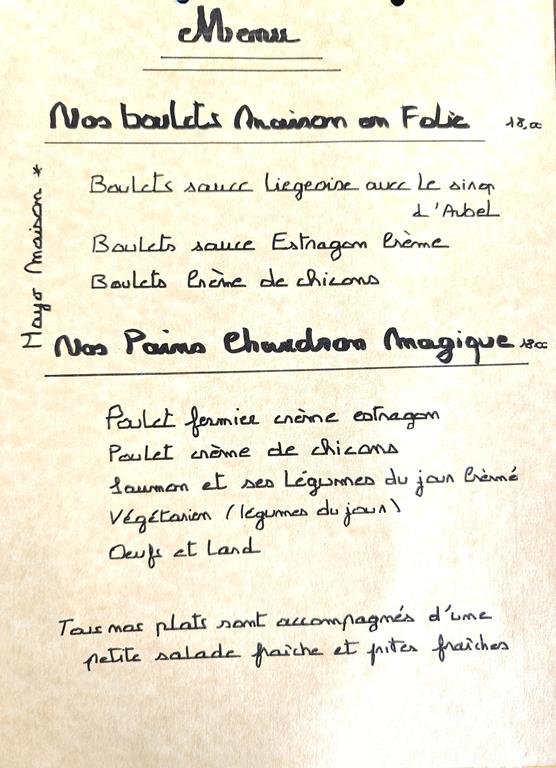 Menu
Nos boulets Maison en Folie 18,00
Boulets sauce Liegeoise avec Le sirop
d'Aubel
Boulets sauce Estragon Crème
Boulets Crème de chicons
Mayo Maison *
Nos Pains Chaudron Magique 18,00
Poulet fermier crème estragon
Poulet crème de chicons
Saumon et ses Légumes du jour Crèmé
Végétarien (légumes du jour)
Oeufs et Lard
Tous nos plats sont accompagnés d'une
petite salade fraîche et frites fraîches